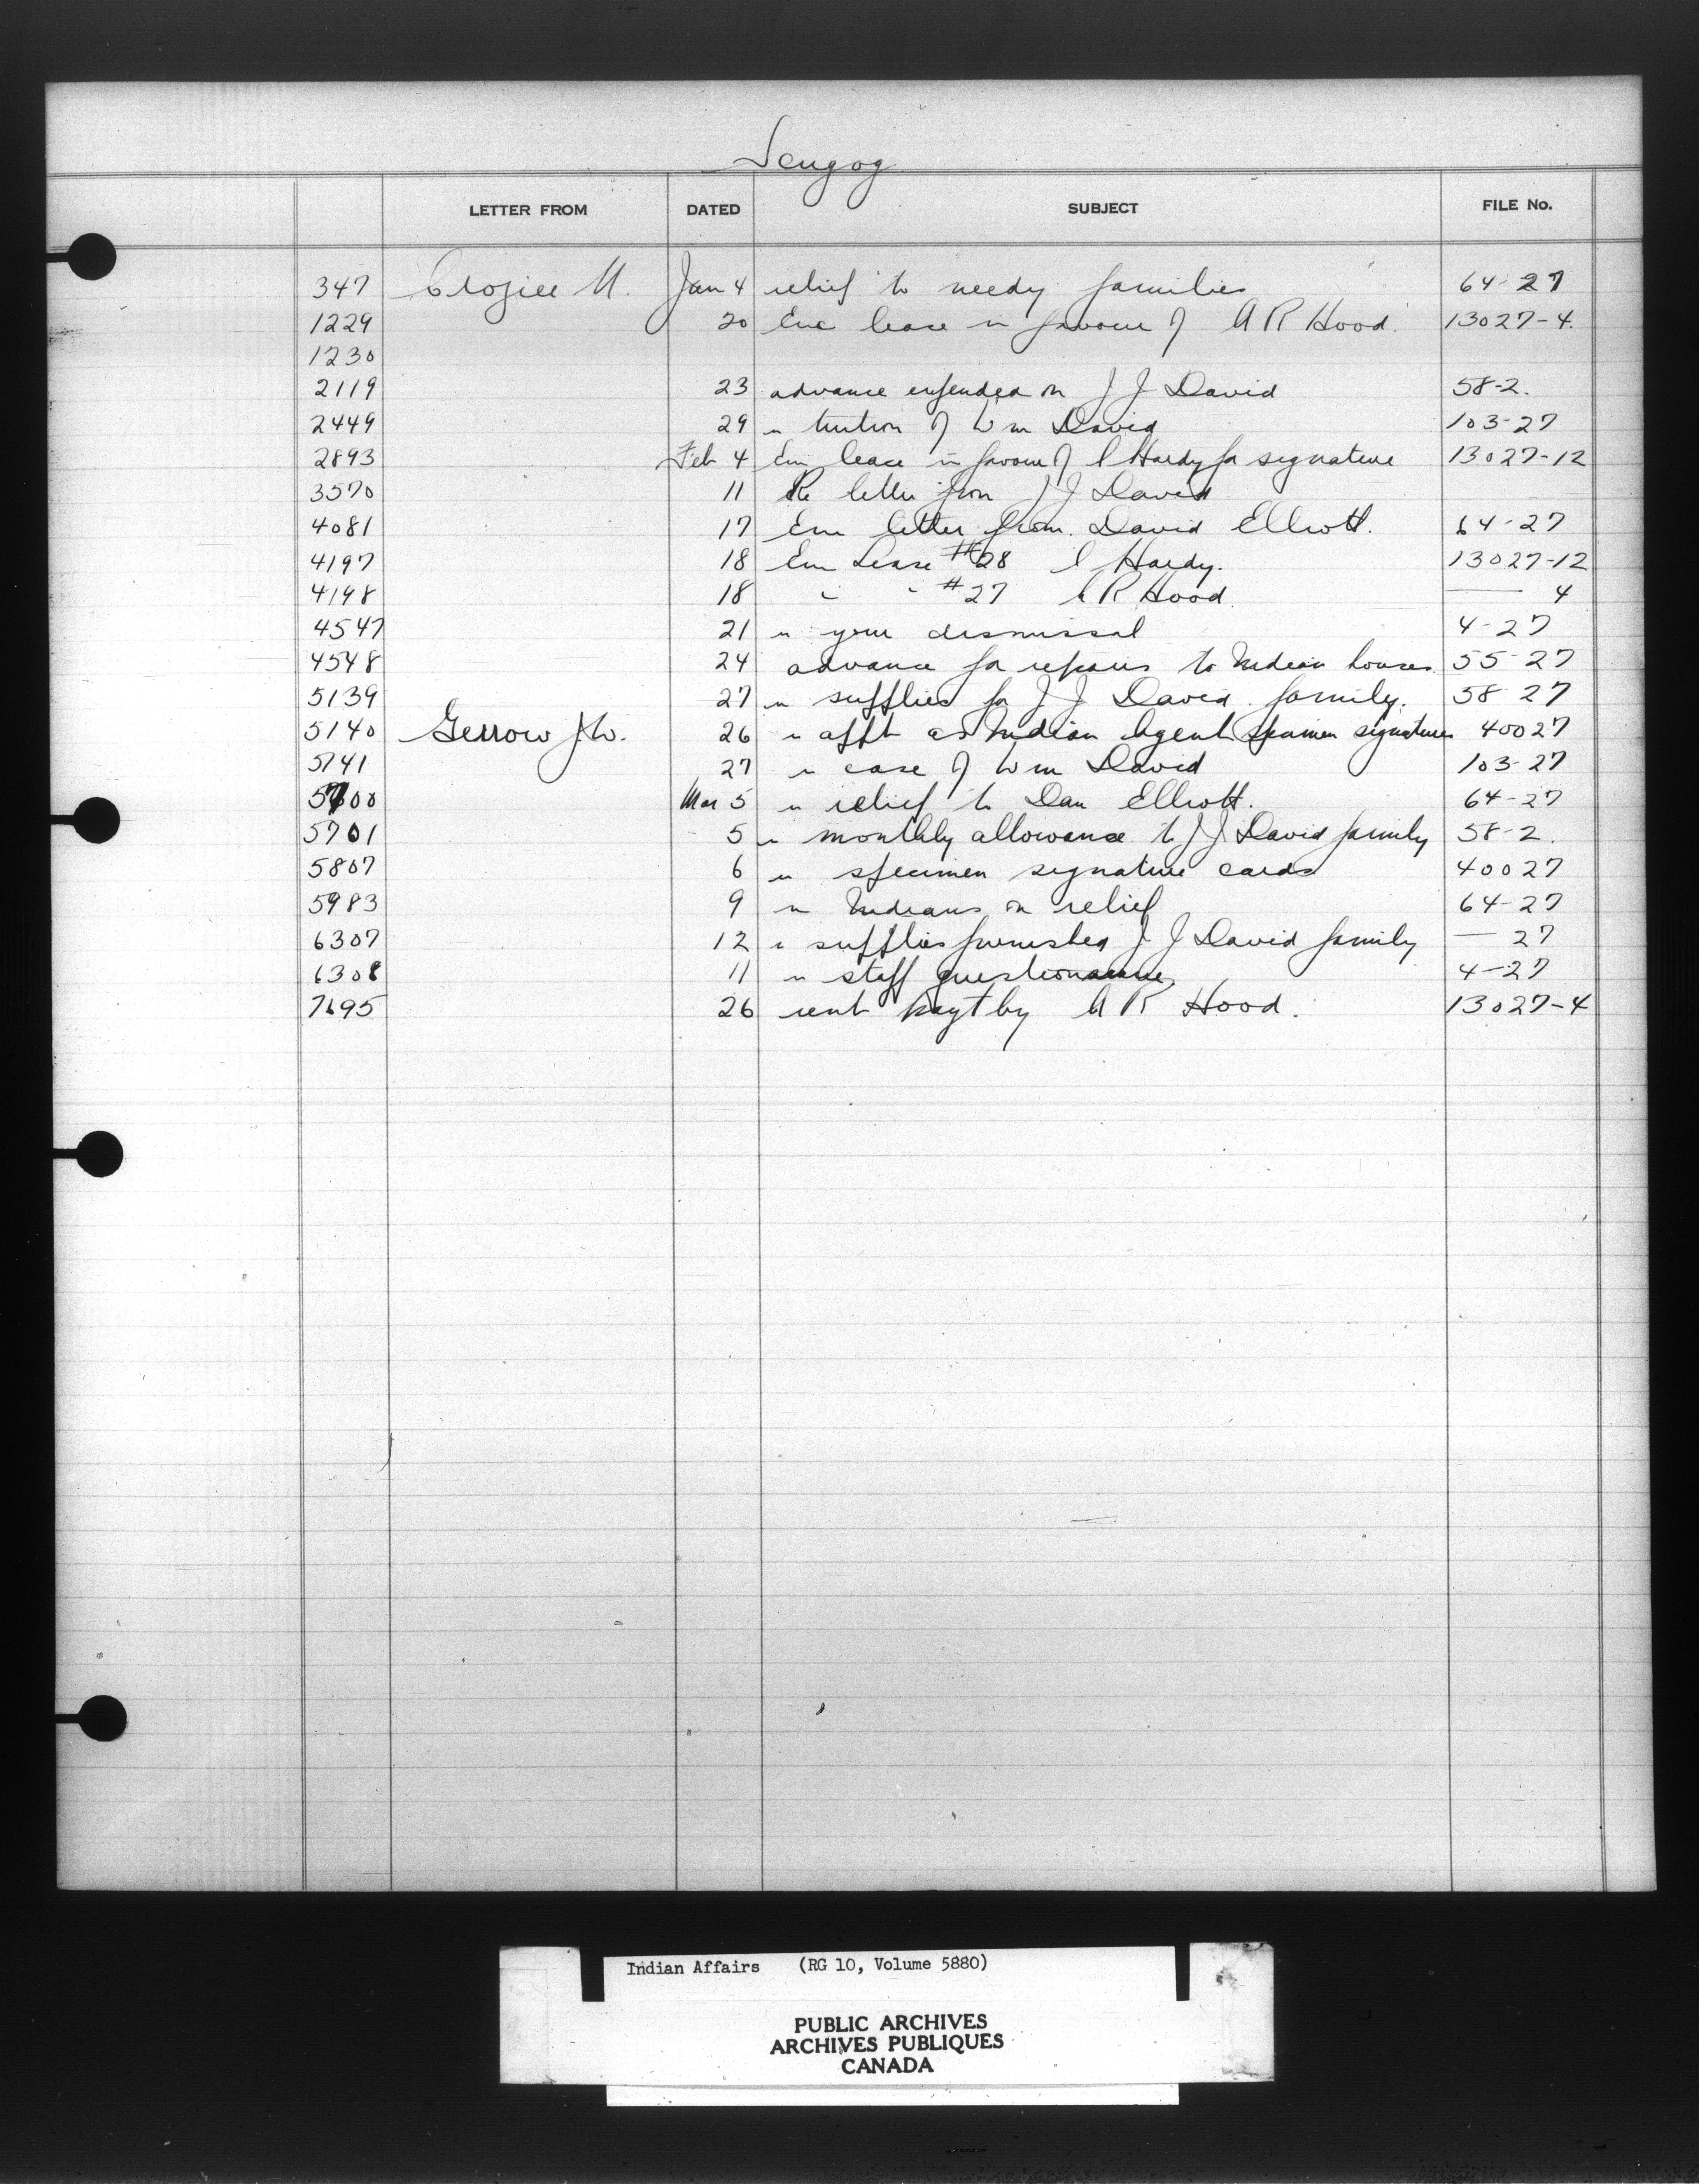 Scugog
LETTER FROM DATED SUBJECT FILE No.
347 Crozier M. Jan 4 relief to needy families 64-27
1229 20 Enc lease in favour of A R Hood. 13027-4.
1230
2119 23 advance expended on J J David 58-2.
2449 29 re tuition of Wm David 103-27
2893 Feb 4 Enc lease in favour of C Hardy for signature 13027-12
3570 11 Re letter from J J David
4081 17 Enc letter from David Elliott. 64-27
4197 18 Enc Lease #28 C Hardy. 13027-12
4198 18 " " #27 A R Hood. — 4
4547 21 re your dismissal 4-27
4548 24 advance for repairs to Indian houses 55-27
5139 27 re supplies for J J David family. 58 27
5140 Gerrow J.W. 26 re appt as Indian Agent specimen signatures 40027
5141 27 re case of Wm David 103-27
5700 Mar 5 re relief to Dan Elliott. 64-27
5701 5 re monthly allowance to J J David family 58-2.
5807 6 re specimen signature cards 40027
5983 9 re Indians on relief 64-27
6307 12 re supplies furnished J J David family — 27
6308 11 re staff questionaire 4-27
7695 26 rent payt by A R Hood. 13027-4
Indian Affairs (RG 10, Volume 5880)
PUBLIC ARCHIVES
ARCHIVES PUBLIQUES
CANADA